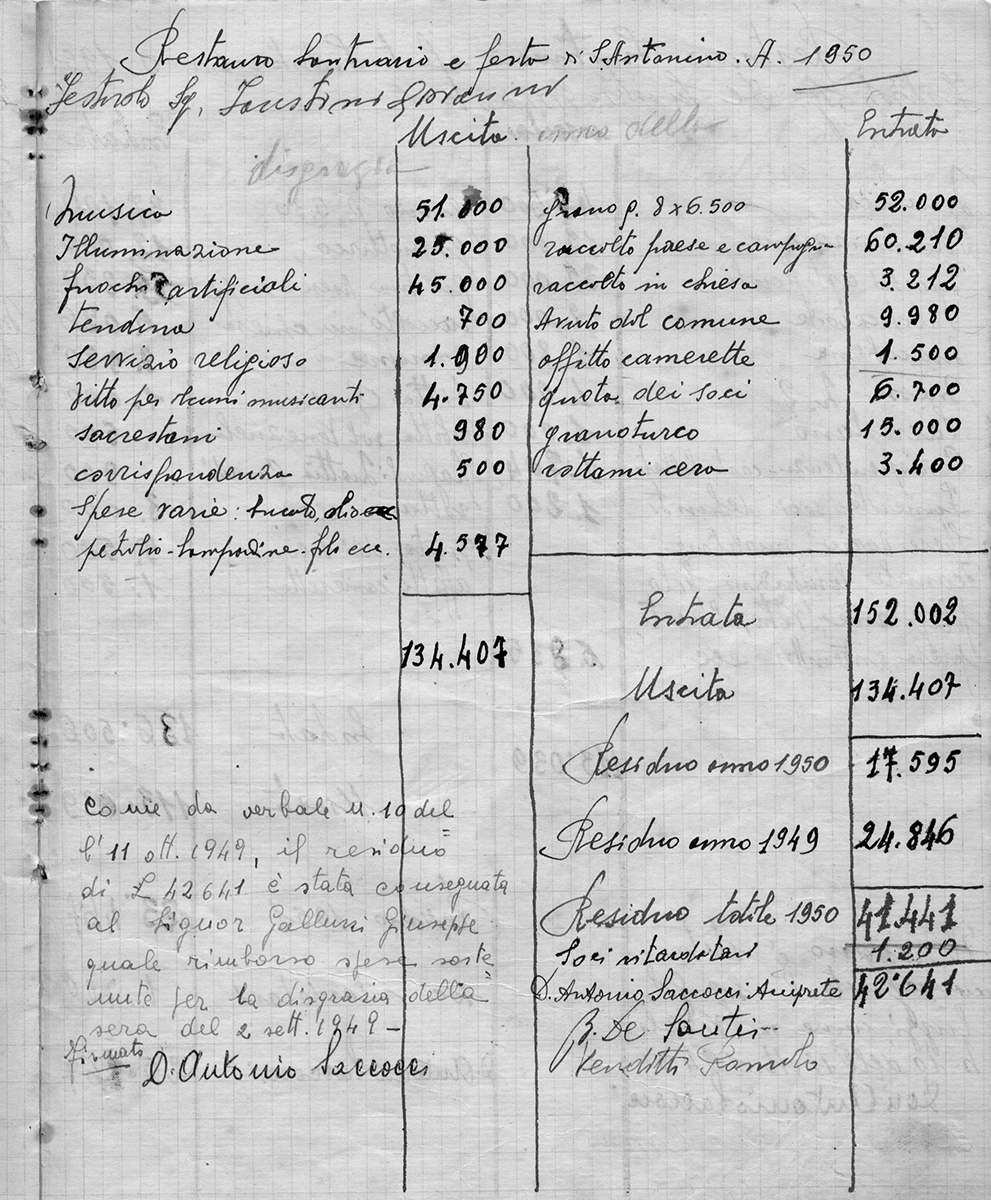 Restauro Santuario e festa di S. Antonino. A. 1950
Festarolo Sg. Faustini Giovanni
Uscita anno della Entrata
disgrazia
musica 51.000 grano q. 8 x 6.500 52.000
Illuminazione 25.000 raccolto paese e campagna 60.210
fuochi artificiali 45.000 raccolto in chiesa 3.212
tendina 700 Avuto dal comune 9.980
Servizio religioso 1.900 affitto camerette 1.500
Vitto per alcuni musicanti 4.750 quota dei soci 6.700
sacrestani 980 granoturco 15.000
corrispondenza 500 rottami cera 3.400
Spese varie: bucato, olio
petrolio - lampadine - filo ecc. 4.577
Entrata 152.002
134.407
Uscita 134.407
Residuo anno 1950 17.595
Residuo anno 1949 24.846
Residuo totale 1950 41.441
Soci ritardatari 1.200
D. Antonio Saccocci Arciprete 42.641
B. De Santis
Venditti Romolo
Come da verbale n. 10 del
l'11 ott. 1949, il residuo
di £ 42641 è stata consegnata
al Signor Gallussi Giuseppe
quale rimborso spese soste=
nute per la disgrazia della
sera del 2 sett. 1949 -
Firmato D. Antonio Saccocci